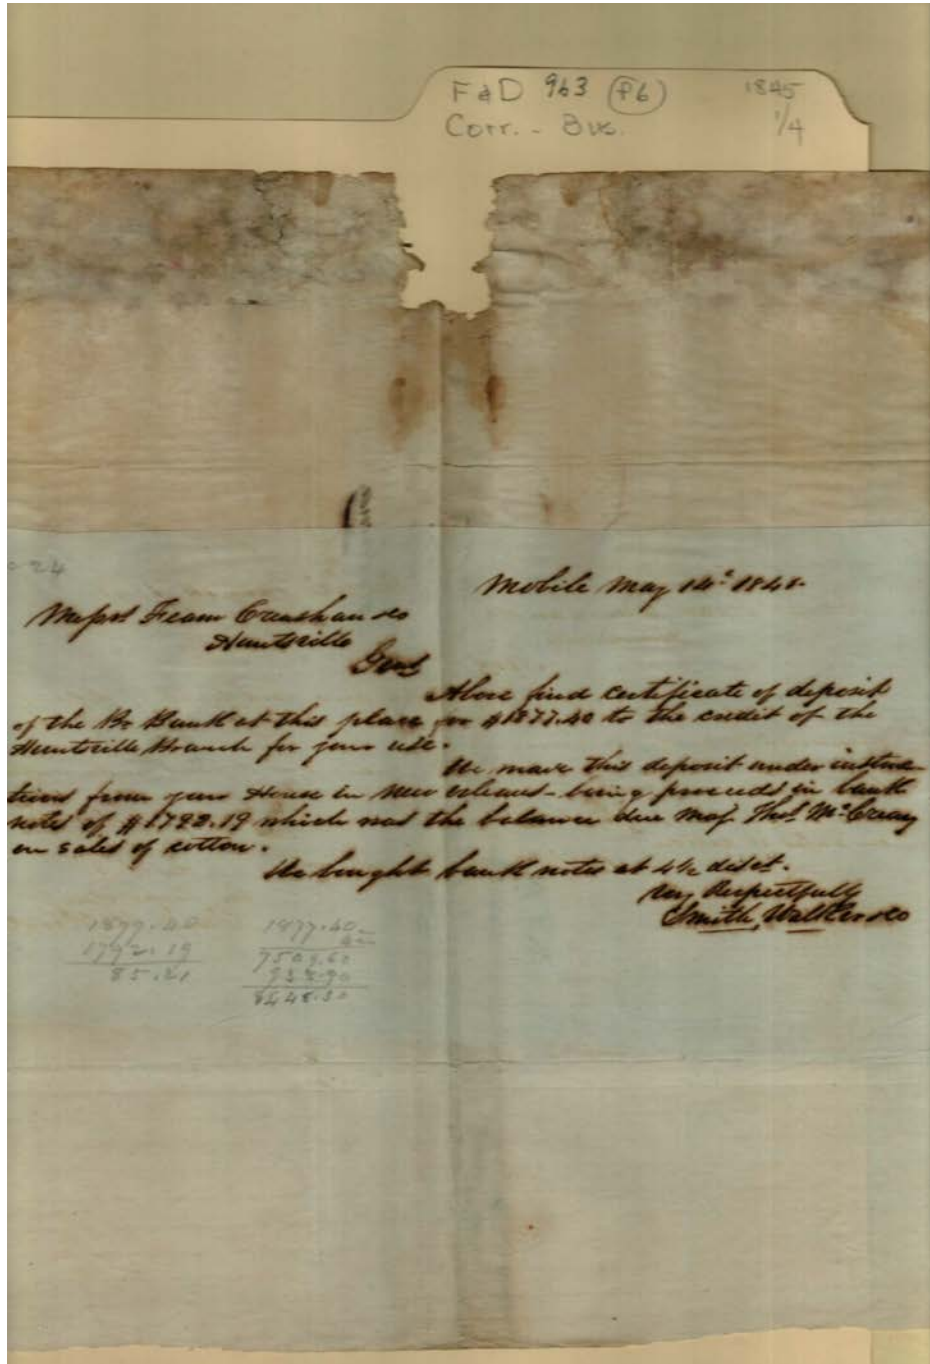 F&D 963 (F6) 1845
Corr. - Bus. 1/4
24
Mobile May 14th 184
Messrs Fearn Crenshaw &co
Huntsville
Gent
Above find certificate of deposit
of the Br Bank at this place for $1877.40 to the credit of the
Huntsville Branch for your use.
We make this deposit under instruc-
tions from your House in New Orleans - being proceeds in bank
notes of $1792.19 which was the balance due Maj. Thos. McCreay
on sales of cotton.
We bought bank notes at 4½ disct.
Very Respectfully
Smith, Walker &co
1877.40 1877.40
1792.19
85.21 7509.60
938.70
8448.30